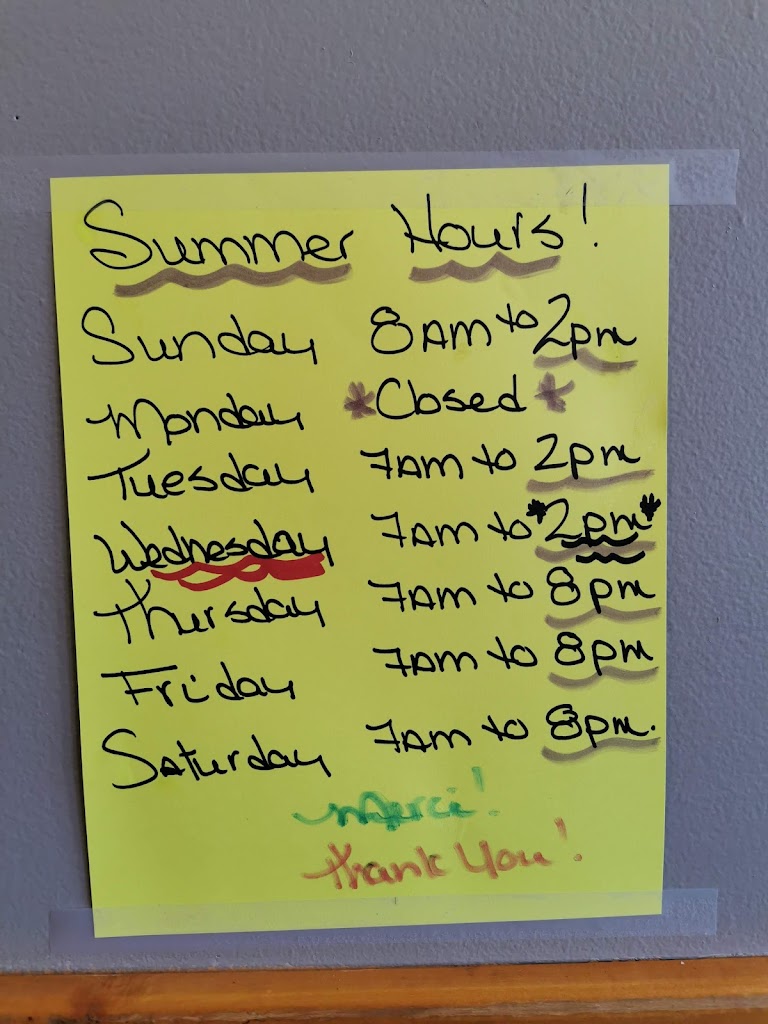 Summer Hours!
Sunday 8AM to 2pm
Monday *Closed*
Tuesday 7am to 2pm
Wednesday 7am to *2pm*
Thursday 7am to 8pm
Friday 7am to 8pm
Saturday 7am to 8pm.
Merci!
Thank You!